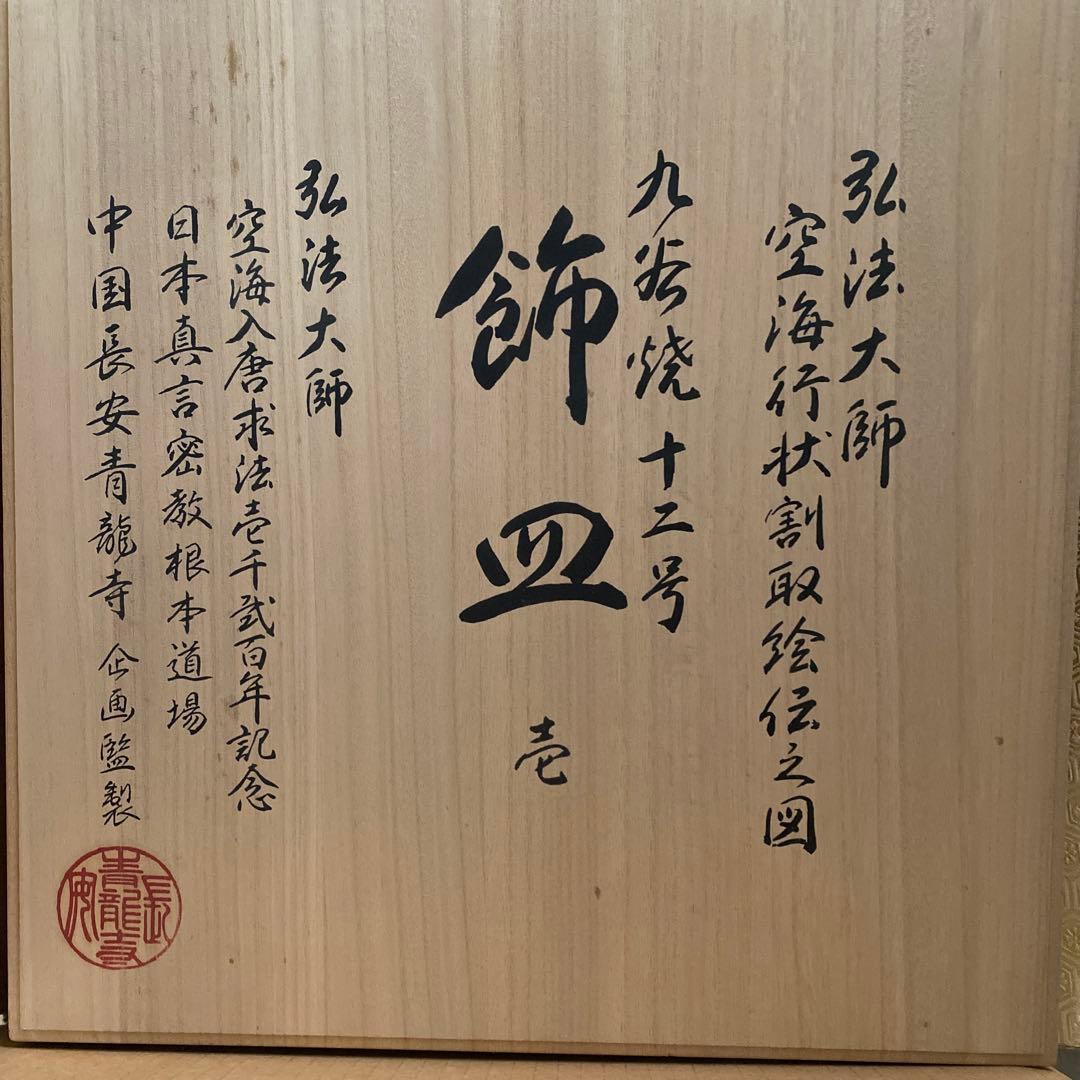 弘法大師
空海行状割取絵伝之図
九谷焼十二号
飾皿
壱
弘法大師
空海入唐求法壱千弐百年記念
日本真言密教根本道場
中国長安青龍寺 企画監製
長安
青龍寺